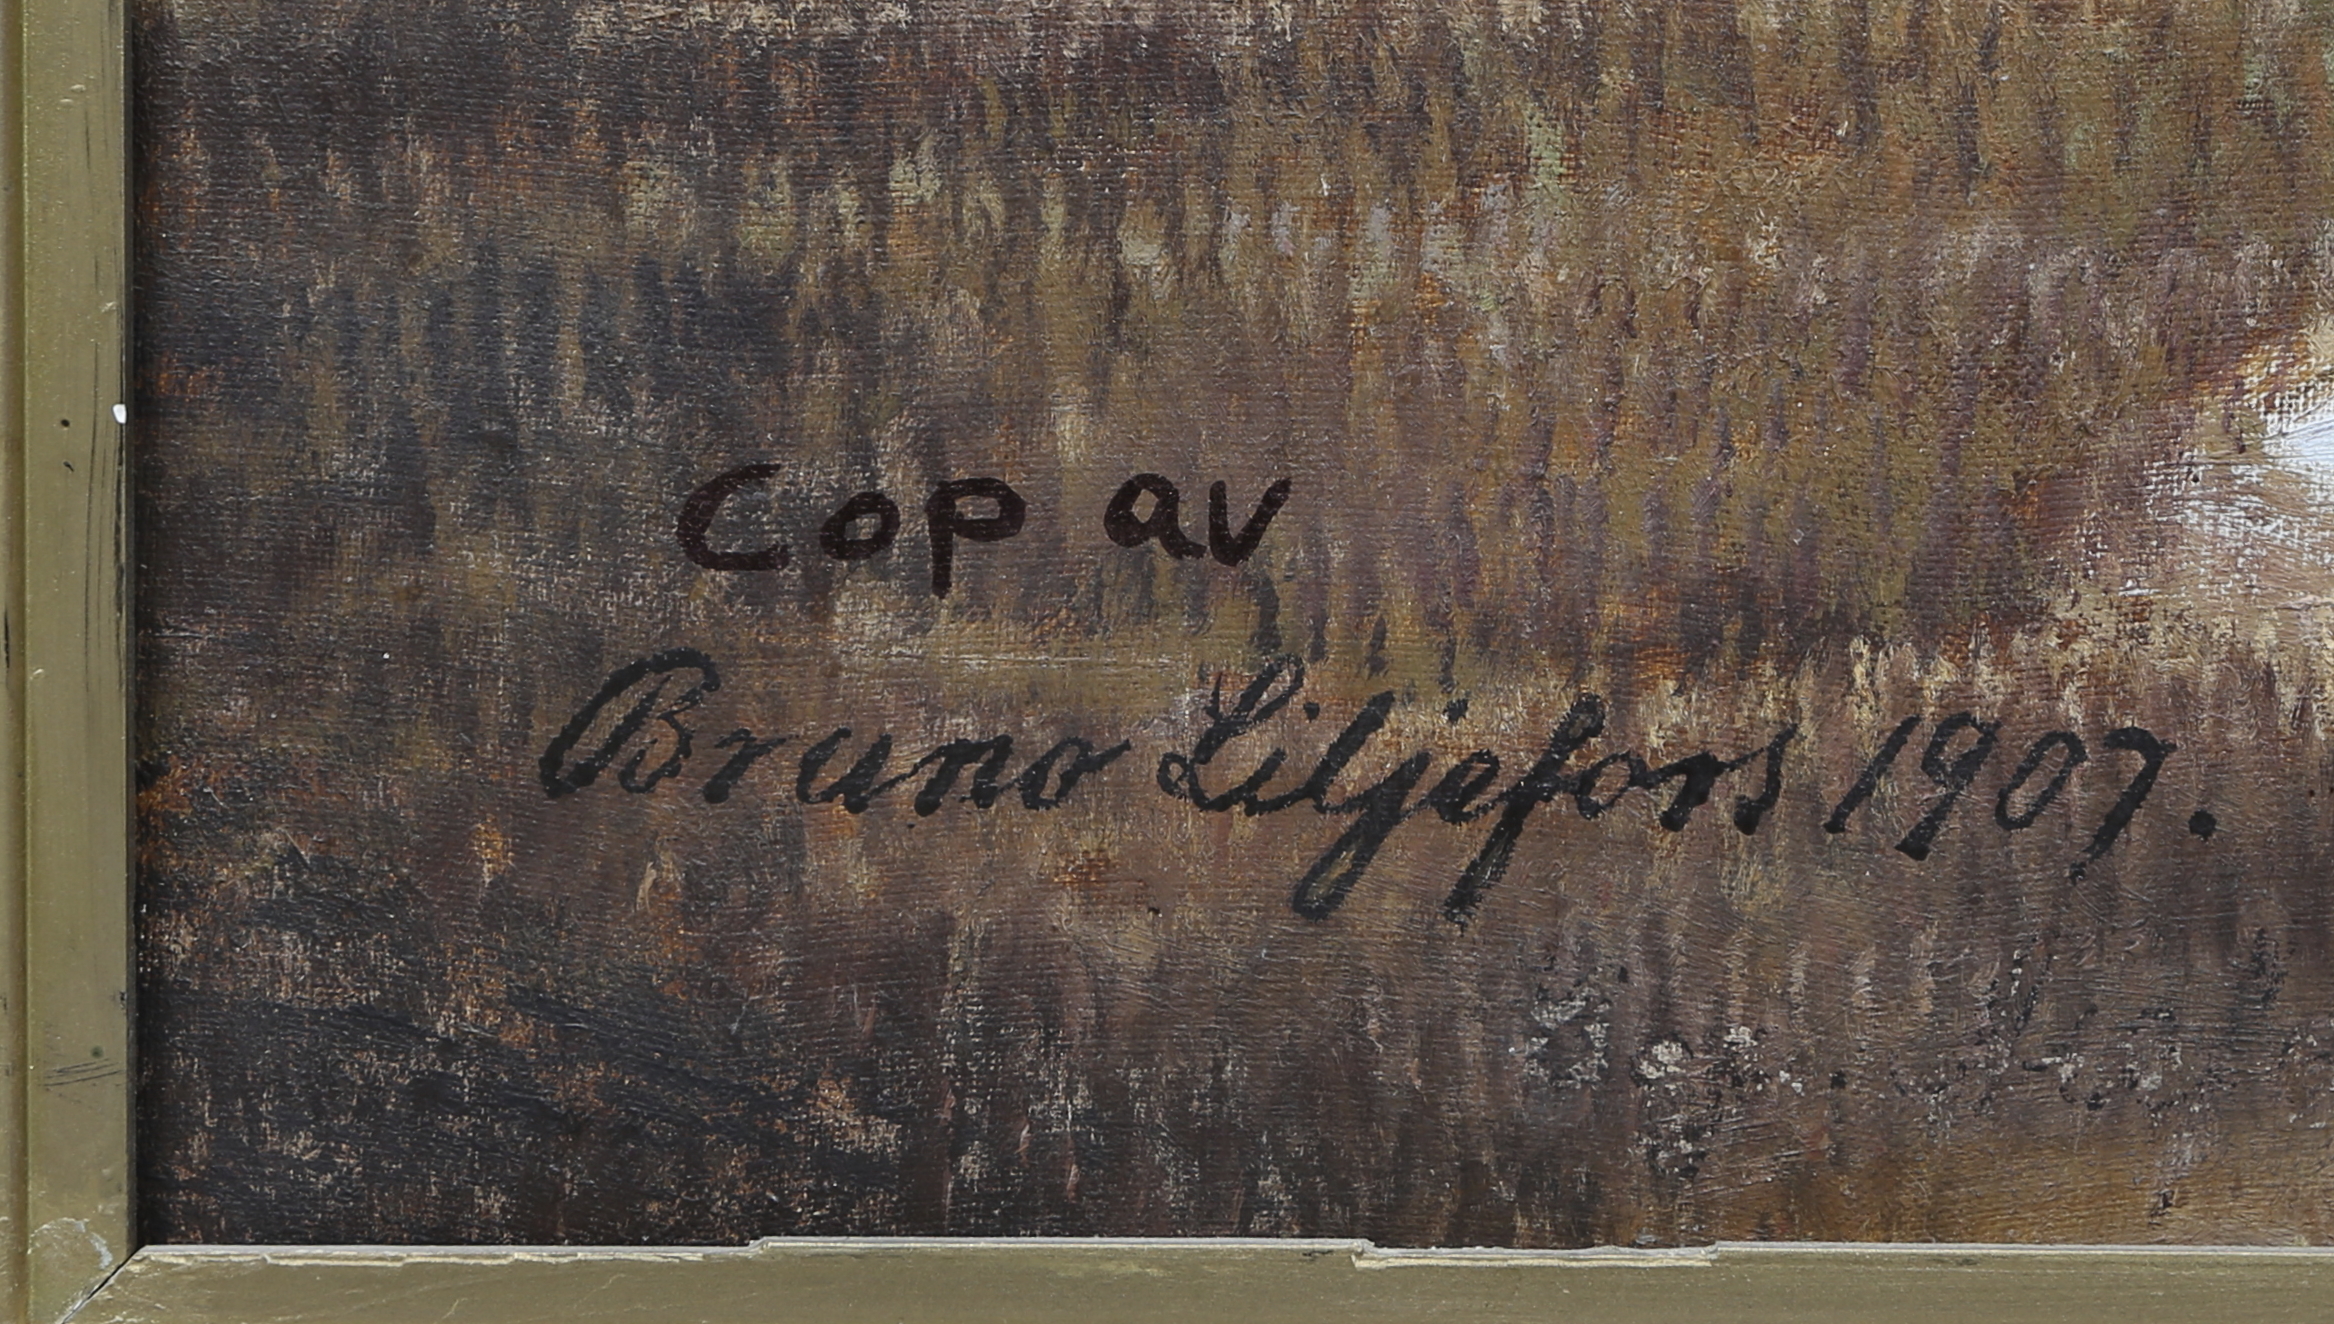 Cop av
Bruno Liljefors 1907.